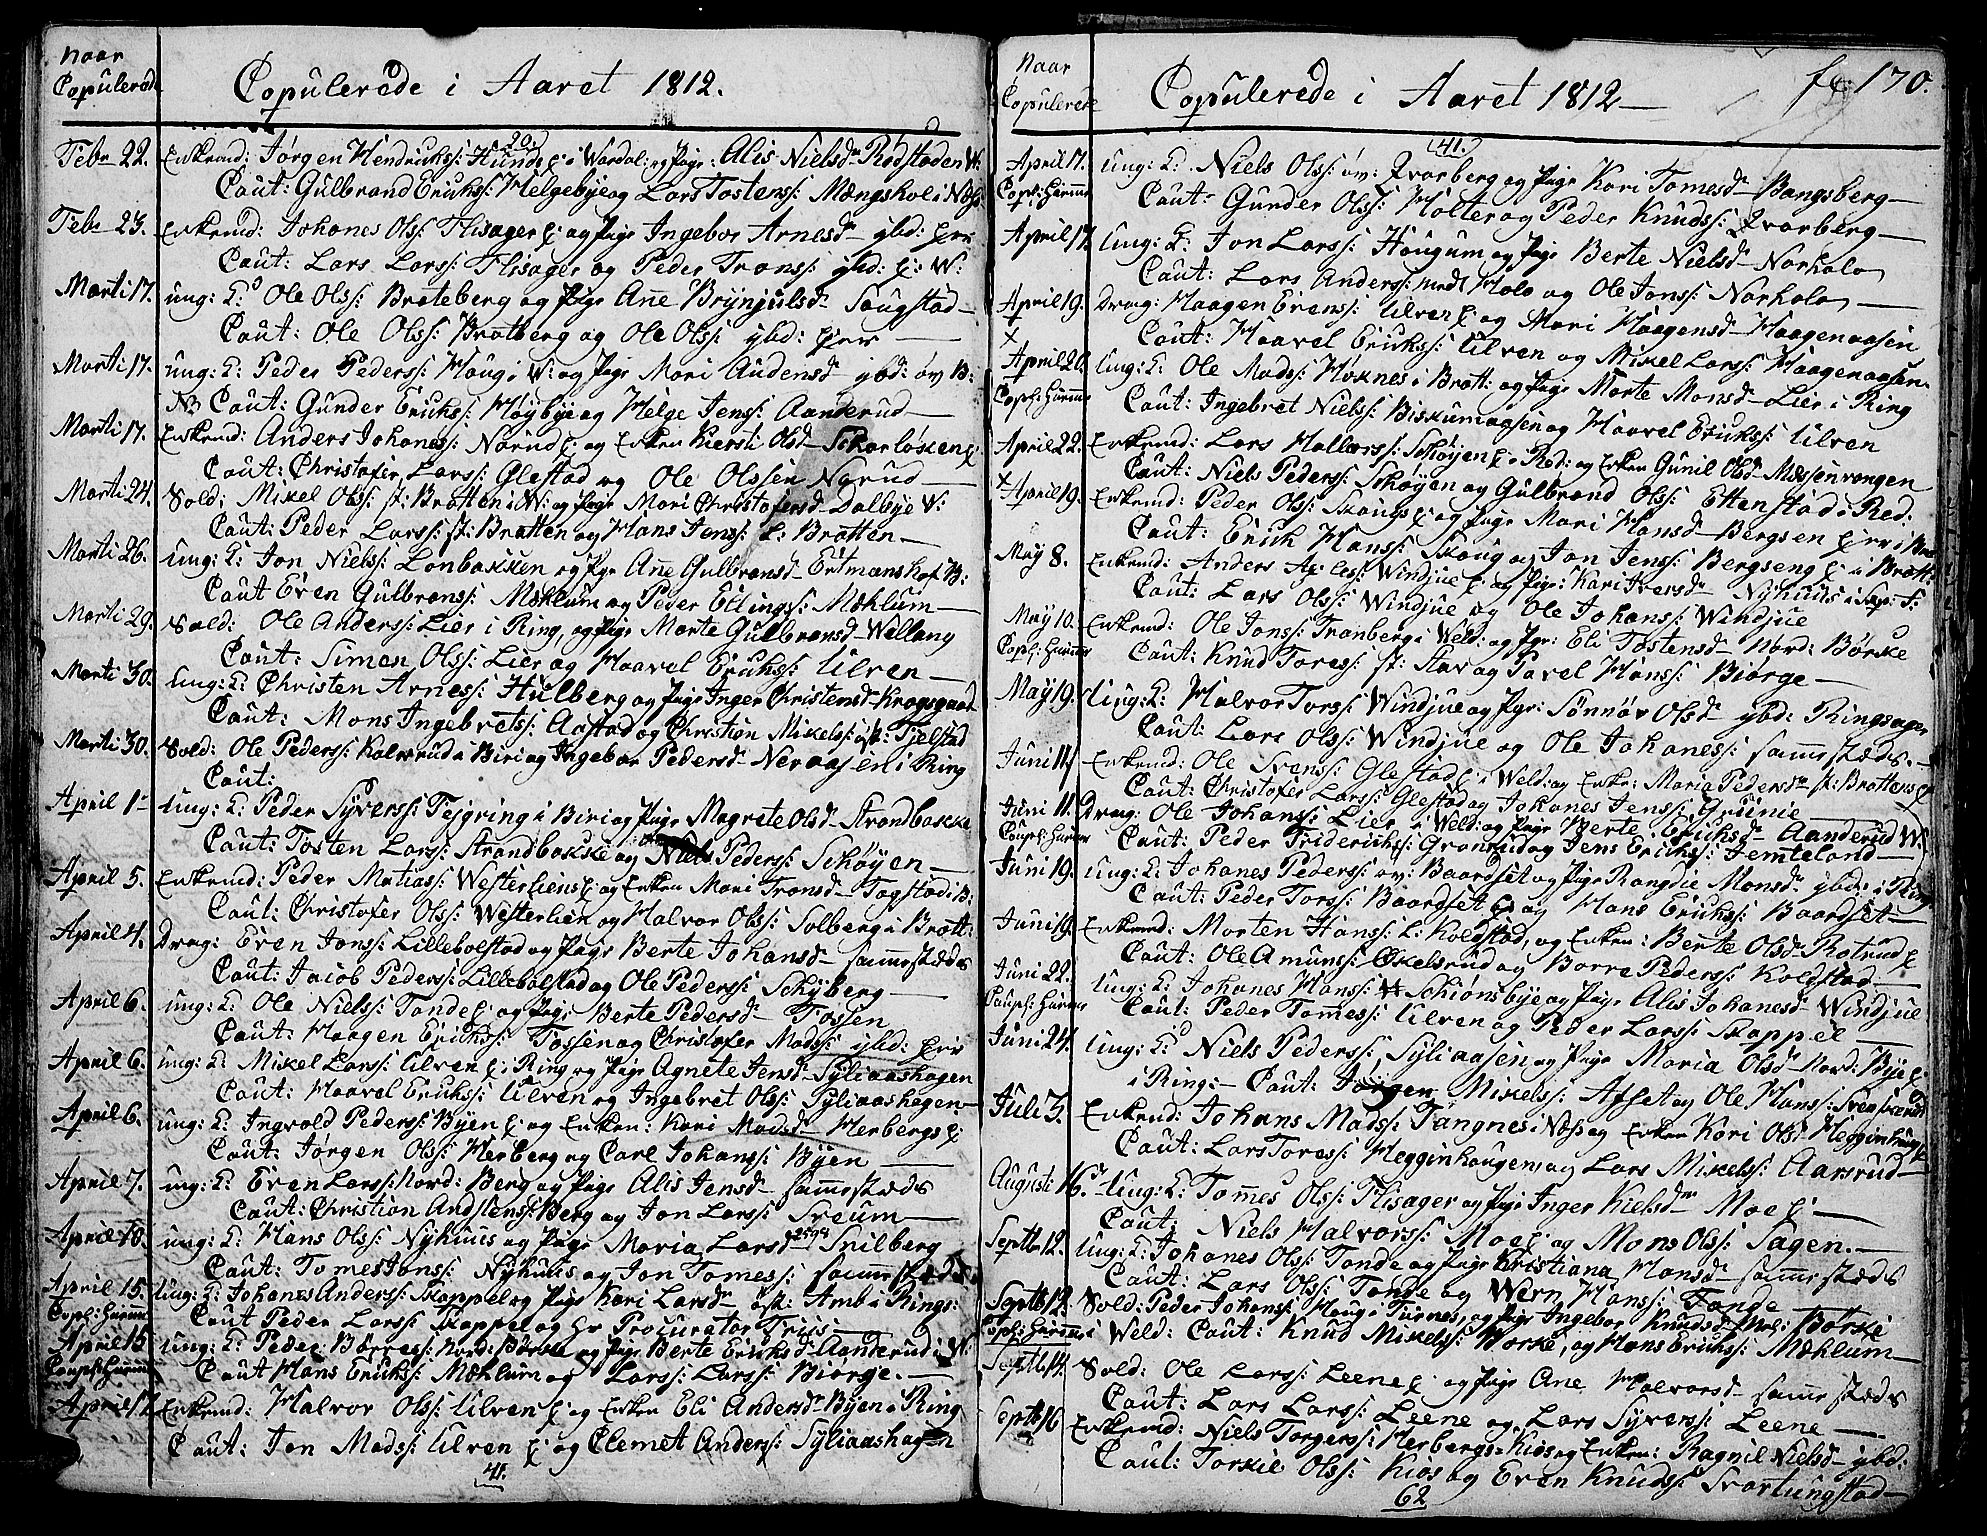 Naar
Copulerede
Copulerede i Aaret 1812.
20.
Febr 22. Enkemd: Jørgen Hendrichs: Hunds e: i Wardal: og Pige: Alis Nielsdr Rødstøden W:
Caut: Gulbrand Erichs: Helgebye og Lars Tostens: Mængshol i Næs
Febr 23. Enkemd: Johanes Ols: Flisager e: og Pige Ingebor Arnesd ybd:
Caut: Lars Lars: Flisager og Peder Trons: ybd: e: W:
Marti 17. ung: K: Ole Ols: Broteberg og Pige Ane Brynjulsd Saugstad
Caut: Ole Ols: Brotberg og Ole Ols: ybd:
Marti 17. ung: K: Peder Peders: Houg i W: og Pige Mari Audensd ybd: øv B:
Caut: Gunder Erichs: Høybye og Helge Jens: Aanderud
Marti 17. Enkemd: Anders Johanes: Nørud e: og Enken Kiersti Olsd Skarløken e:
Caut: Christofer Lars: Glestad og Ole Olssen Nørud
Marti 24. Sold: Mikel Ols: st: Brotten i W: og Pige Mari Christofersd Dalbye W:
Caut: Peder Lars: st: Brotten og Hans Jens: L: Brotten
Marti 26. ung: K: Jon Niels: Lonbakken og Pige Ane Gulbransd Ertmanshof B:
Caut Even Gulbrans: Mæhlum og Peder Ellings: Mæhlum
Marti 29. Sold: Ole Anders: Lier i Ring, og Pige Marte Gulbransd Wellang
Caut: Simen Ols: Lier og Haavel Erichs: Ulven
Marti 30. ung: K: Christen Arnes: Hulberg og Pige Inger Christensd Krogsgaard
Caut: Mons Ingebrets: Aastad og Christian Mikels: øst: Fjelstad
Marti 30. Sold: Ole Peders: Kalverud i Biri og Ingebor Pedersd Neraasen i Ring
Caut:
April 1 ung: K: Peder Syvers: Fejgring i Biri og Pige Magrete Olsd Strandbakke
Caut: Tosten Lars: Strandbakke og Niels Peders: Schøyen
April 5. Enkemd: Peder Matias: Westerliens e: og Enken Mari Tronsd Fogstad i B:
Caut: Christofer Ols: Westerlien og Halvor Ols: Solberg i Brott:
April 4. Drag: Even Jons: Lillebolstad og Pige Berte Johansd sammestæds
Caut: Jacob Peders: Lillebolstad og Ole Peders: Schyberg
April 6. ung: K: Ole Niels: Tande e: og Pige Berte Pedersd Fossen
Caut: Haagen Erichs: Fossen og Christofer Mads: ybd:
April 6. ung: K: Mikel Lars: Ulven e: i Ring og Pige Agnete Jensd Syliaashagen
Caut: Haavel Erichs: Ulven og Ingebret Ols: Syliaashagen
April 6. ung: K: Ingvold Peders: Byen e: og Enken: Kari Madsd Herbergs e:
Caut: Jørgen Ols: Herberg og Carl Johans: Byen
April 7. ung: K: Even Lars: Nord: Berg og Pige Alis Jensd sammestæds
Caut: Christian Andstens: Berg og Jon Lars: Sveum
April 10. ung: K: Hans Ols: Nyhuus og Pige Maria Larsd Snilberg
Caut: Tomes Jons: Nyhuus og Jon Tomes: sammestæds
April 15. ung: K: Johanes Anders: Skappel og Pige Kari Larsd øst: Amb i Rings:
Copl: Hamme Caut Peder Lars: Skappel og Hr Procurator Friis
April 15 ung: K: Peder Børres: Nord: Børske og Pige Berte Erichsd Aanderud i W:
Caut Hans Erichs: Mæhlum og Lars: Lars: Biørge.
April 17 Enkemd: Halvor Ols: Ulven e: og Enken Eli Andersd Byen i Ring
Caut: Jon Mads: Ulven e: og Clemet Anders: Syliaashagen
41.
Naar
Copulerede
Copulerede i Aaret 1812
170.
41.
April 17. ung: K: Niels Ols: øv: Qvarberg og Pige Kari Tomesd Bangsberg
Caut: Gunder Ols: Holter og Peder Knuds: Qvarberg
April 17. ung: K: Jon Lars: Hougum og Pige Berte Nielsd Norholo
Caut: Lars Anders: Holo og Ole Jons: Norholo
April 19. Drag: Haagen Evens: Ulven e: og Mari Haagensd Haagenaasen
X Caut: Haavel Erichs: Ulven og Mikel Lars: Haagenaasen
April 20. ung: K: Ole Mads: Hoknes i Brott: og Pige Marte Monsd Lier i Ring
Caut: Ingebret Niels: Biskumaasen og Haavel Erichs: Ulven
April 22. Enkemd: Lars Hallvors: Schøyen e: Red: og Enken Gunil Olsd Mæsenvangen
Caut: Niels Peders: Schøyen og Gulbrand Ols: Ettenstad i Red:
X April 19. Enkemd: Peder Ols: Skougs e: og Pige Mari Hansd Bergsen
Caut: Erich Hans: Skoug og Jon Jens: Bergseng e: i Brott:
May 8. Enkemd: Anders Windjue e: og Pige: Kari Iversd Nyhuus
Caut: Lars Ols: Windjue og Ole Johans: Windjue
May 10. Enkemd: Ole Jons: Tranberg i Weld: og Pige: Eli Tostensd Nord: Børske
Caut: Knud Tores: st: Stav og Pavel Hans: Biørge
May 19. ung: K: Halvor Tors: Windjue og Pige: Sønnøv Olsd ybd: Ringsager
Caut: Lars Ols: Windjue og Ole Johanes: sammestæds.
Juni 11 Enkemd: Ole Svens: Glestad e: i Weld: og Enke: Maria Pedersdr st: Brottens e:
Caut: Christofer Lars: Glestad og Johanes Jens: Grøenie
Juni 11. Drag: Ole Johans: Lier i Weld: og Pige Berte Erichsd Aanderud W:
Caut: Peder Friderichs: Granrud og Jens Erichs: Jemteland
Juni 19. ung: K: Johanes Peders: øv: Baardset og Pige Rangdie Monsd ybd: i Ring
Caut: Peder Tors: Baardset e: og Hans Erichs: Baardset
Juni 19. Enkemd: Morten Hans: L: Koldstad, og Enken: Berte Olsd Rotrud e:
Caut: Ole Amuns: Økelsrud og Borre Peders: Koldstad
Juni 22. ung: K: Johanes Hans: Schiønsbye og Pige Alis Johanesd Windjue
Caut: Peder Tomes: Ulven og Peder Lars: Skappel
Juni 24. ung: K: Niels Peders: Syliaasen og Pige Maria Olsd Nord: Bye e:
i Ring: Caut: Jørgen Mikels: Afset og Ole Hans: Svensrud
Juli 3. Enkemd: Johans Mads: Tangnes i Næs og Enken Kari Olsd Hegginhaug
Caut: Lars Tores: Hegginhaugen og Lars Mikels: Aarsrud
Augusti 16. ung: K: Tomes Ols: Flisager og Pige Inger Kielsdr Moe e:
Caut: Niels Halvors: Moe e: og Mons Ols: Sagen.
Septbr 12. ung: K: Johanes Ols: Tande og Pige Kristiana Hansd sammestæds
Caut: Lars Ols: Tande og Wern Hans: Tande
Septbr 12. Sold: Peder Johans: Houg i Furnes, og Pige Ingebor Knudsd Mel: Børske
i Weld: Caut: Knud Mikels: Horske, og Hans Erichs: Mæhlum
Septbr 14. Sold: Ole Lars: Leene e: og Pige Ane Halvorsd sammestæds
Caut: Lars Lars: Leene og Lars Syvers: Leene
Septbr 16 Enkemd: Niels Torgers: Herbergs-Kiøs og Enken: Ragnil Nielsd ybd:
Caut: Torkil Ols: Kiøs og Even Knuds: Svartungstad
62